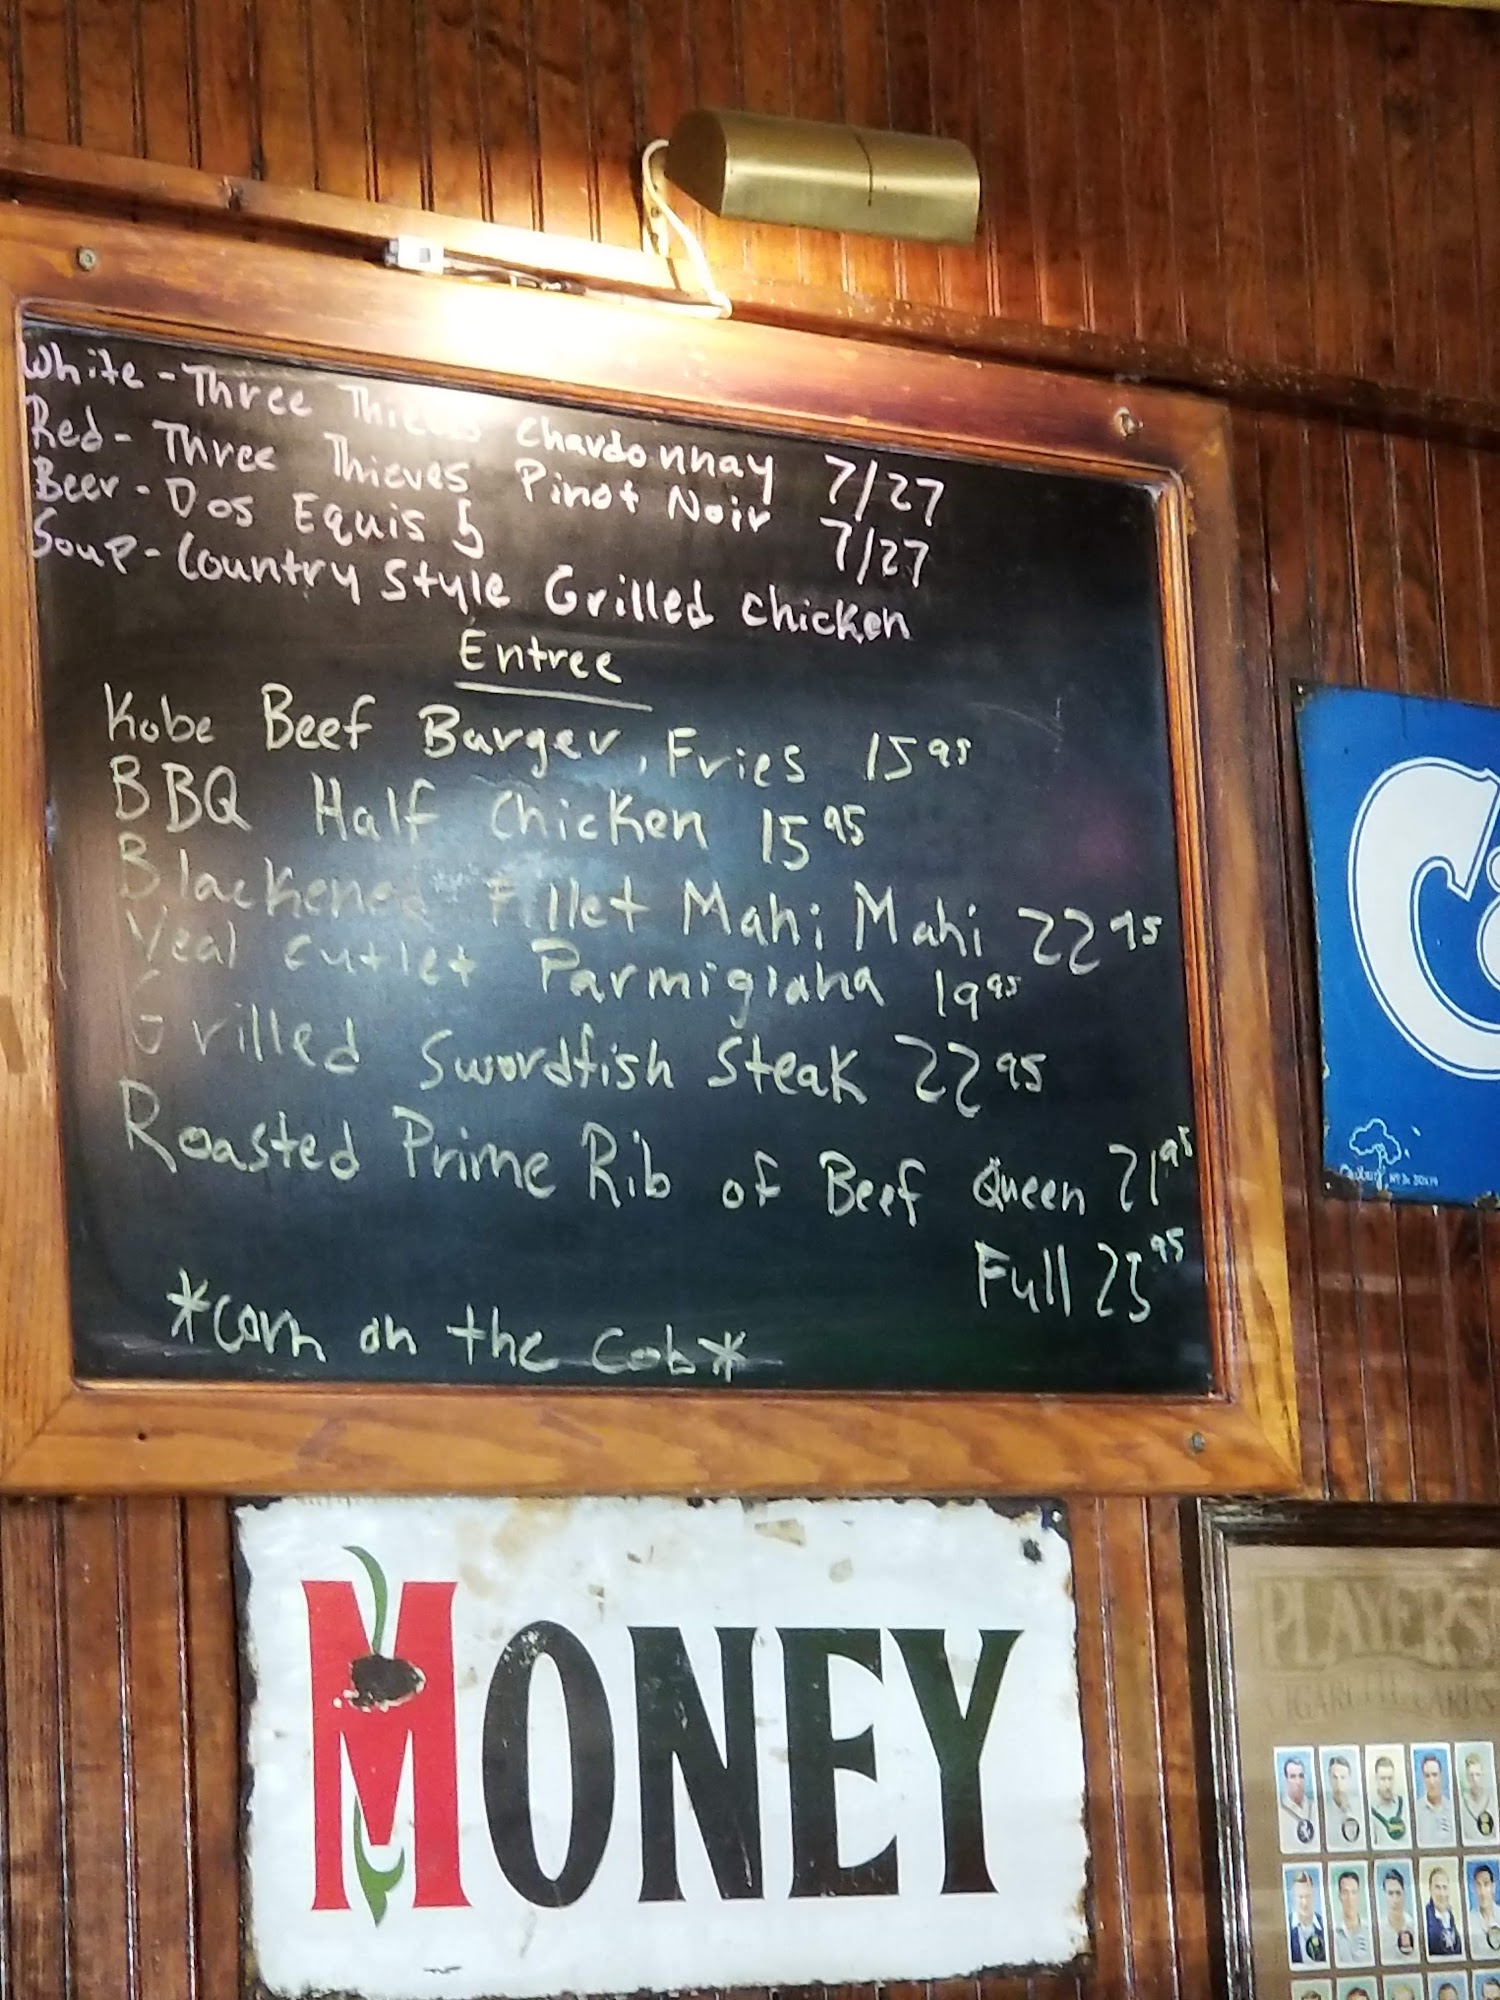 White - Three Thieves Chardonnay 7/27
Red - Three Thieves Pinot Noir 7/27
Beer - Dos Equis 5
Soup - Country Style Grilled Chicken
Entree
Kobe Beef Burger, Fries 15 95
BBQ Half Chicken 15 95
Blackened Fillet Mahi Mahi 22 95
Veal Cutlet Parmigiana 19 95
Grilled Swordfish Steak 22 95
Roasted Prime Rib of Beef Queen 21 95
Full 25 95
*Corn on the Cob*
MONEY
PLAYER'S
CIGARETTE CARDS